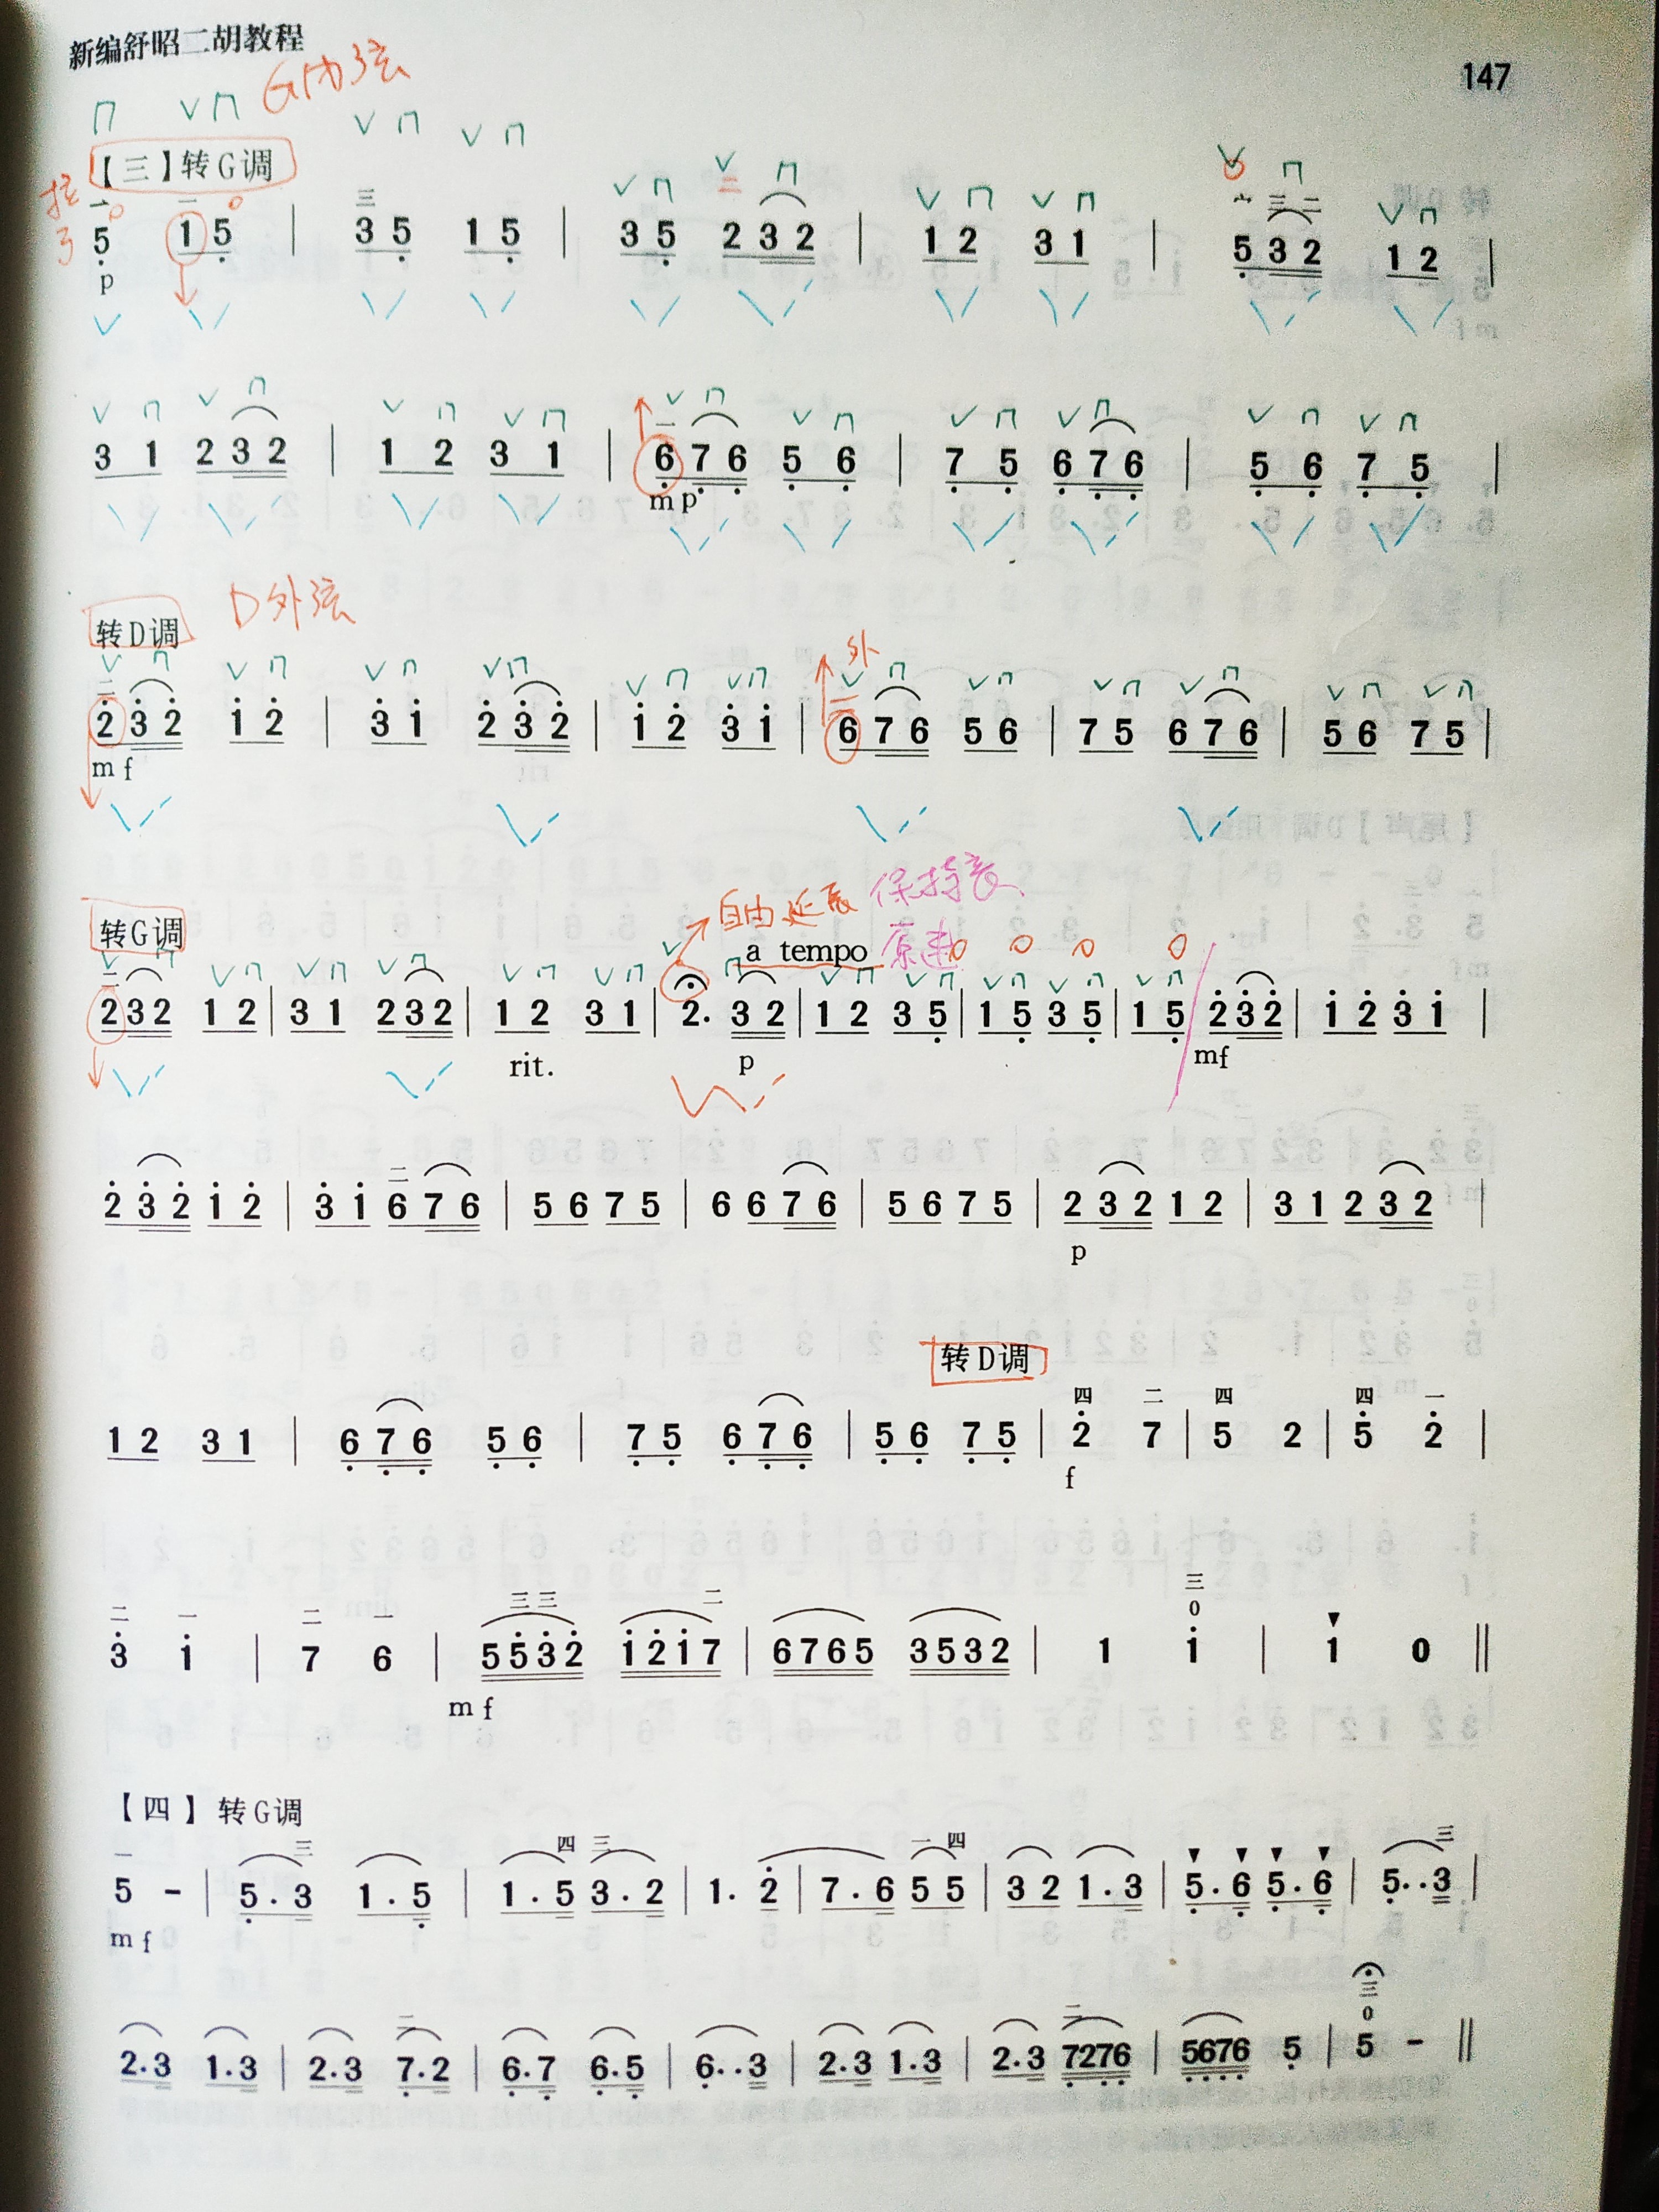 新编舒昭二胡教程
147
G内弦
【三】转G调
5 1 5 | 3 5 1 5 | 3 5 2 3 2 | 1 2 3 1 | 5 3 2 1 2 |
p
3 1 2 3 2 | 1 2 3 1 | 6 7 6 5 6 | 7 5 6 7 6 | 5 6 7 5 |
mp
转D调 D外弦
外
2 3 2 1 2 | 3 1 2 3 2 | 1 2 3 1 | 6 7 6 5 6 | 7 5 6 7 6 | 5 6 7 5 |
mf
自由延长 保持音
转G调 a tempo 原速
2 3 2 1 2 | 3 1 2 3 2 | 1 2 3 1 | 2. 3 2 | 1 2 3 5 | 1 5 3 5 | 1 5 2 3 2 | 1 2 3 1 |
rit. p mf
2 3 2 1 2 | 3 1 6 7 6 | 5 6 7 5 | 6 6 7 6 | 5 6 7 5 | 2 3 2 1 2 | 3 1 2 3 2 |
二
p
转D调
四 二 四 四 一
1 2 3 1 | 6 7 6 5 6 | 7 5 6 7 6 | 5 6 7 5 | 2 7 | 5 2 | 5 2 |
f
二 一 二 一 三 三 二 三 0
3 1 | 7 6 | 5 5 3 2 1 2 1 7 | 6 7 6 5 3 5 3 2 | 1 1 | 1 0 ||
mf
【四】转G调
一 三 四 三 一 四 三
5 - | 5 . 3 1 . 5 | 1 . 5 3 . 2 | 1 . 2 | 7 . 6 5 5 | 3 2 1 . 3 | 5 . 6 5 . 6 | 5 . . 3 |
mf
二 二 三 0
2.3 1.3 | 2.3 7.2 | 6.7 6.5 | 6..3 | 2.3 1.3 | 2.3 7276 | 5676 5 | 5 - ||